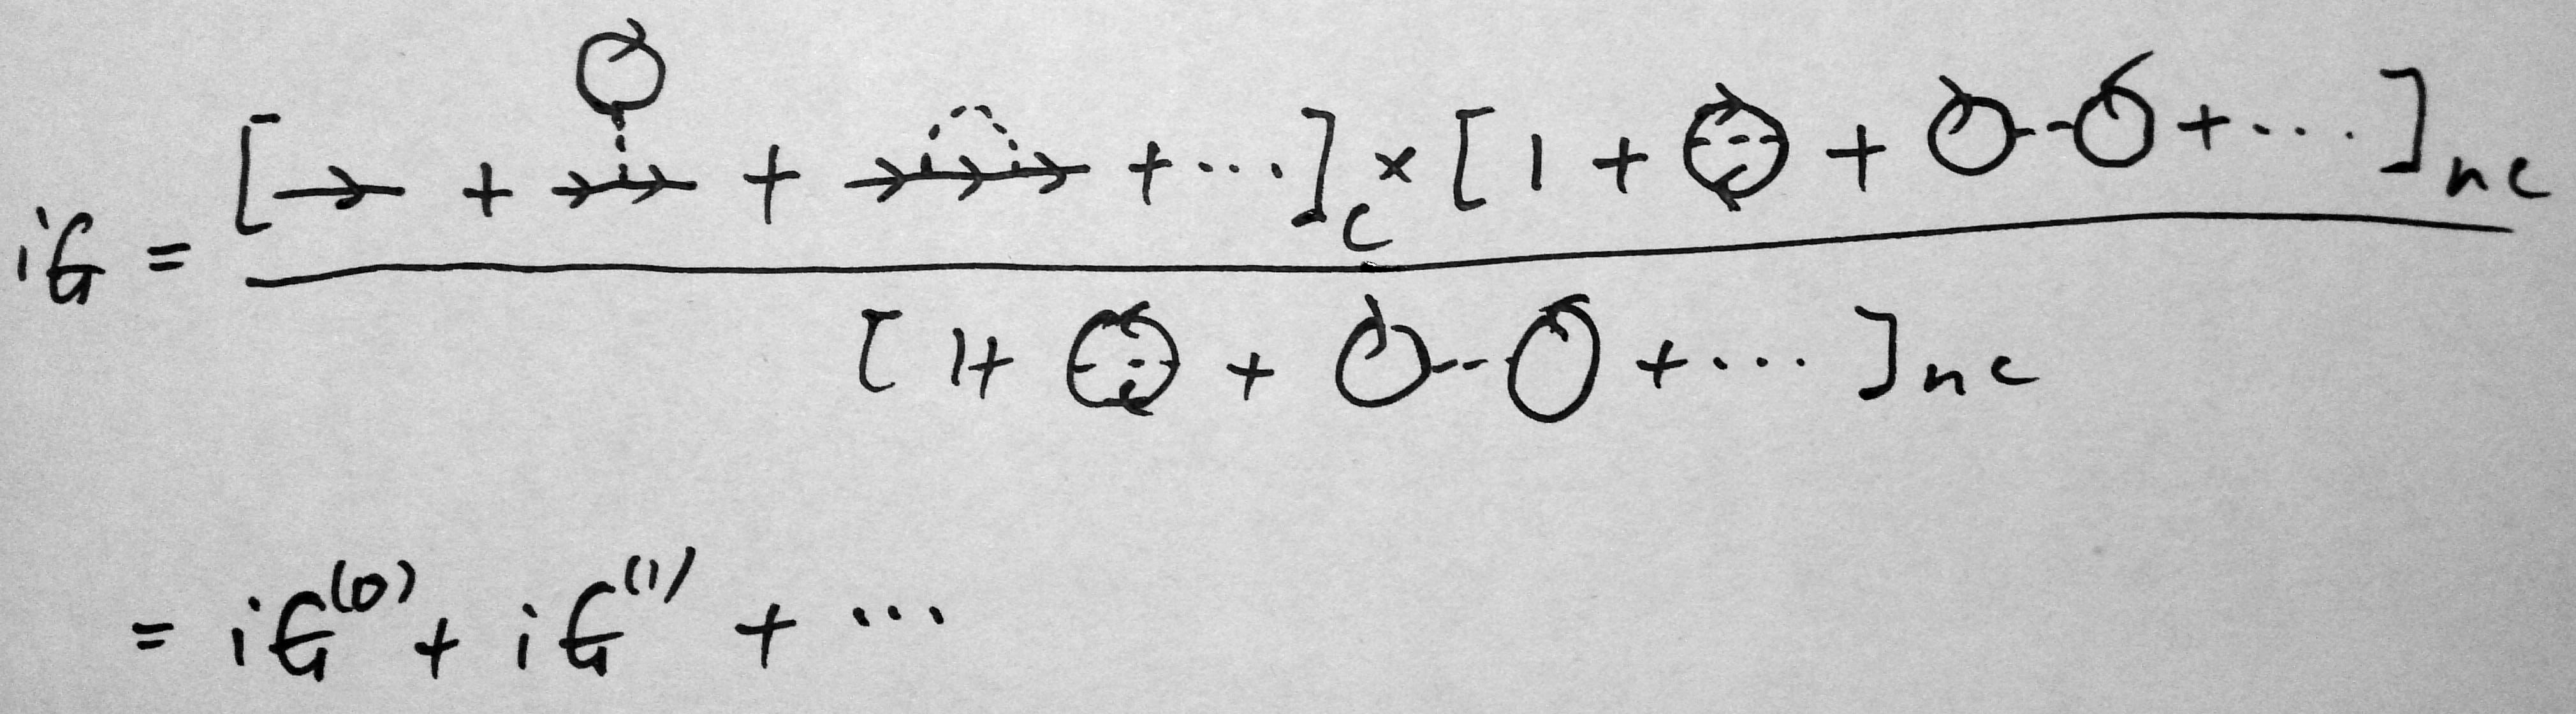 iG = [ → + + + .... ]c × [ 1 + + + .... ]nc
[ 1 + + + .... ]nc
= iG^(0) + iG^(1) + ...